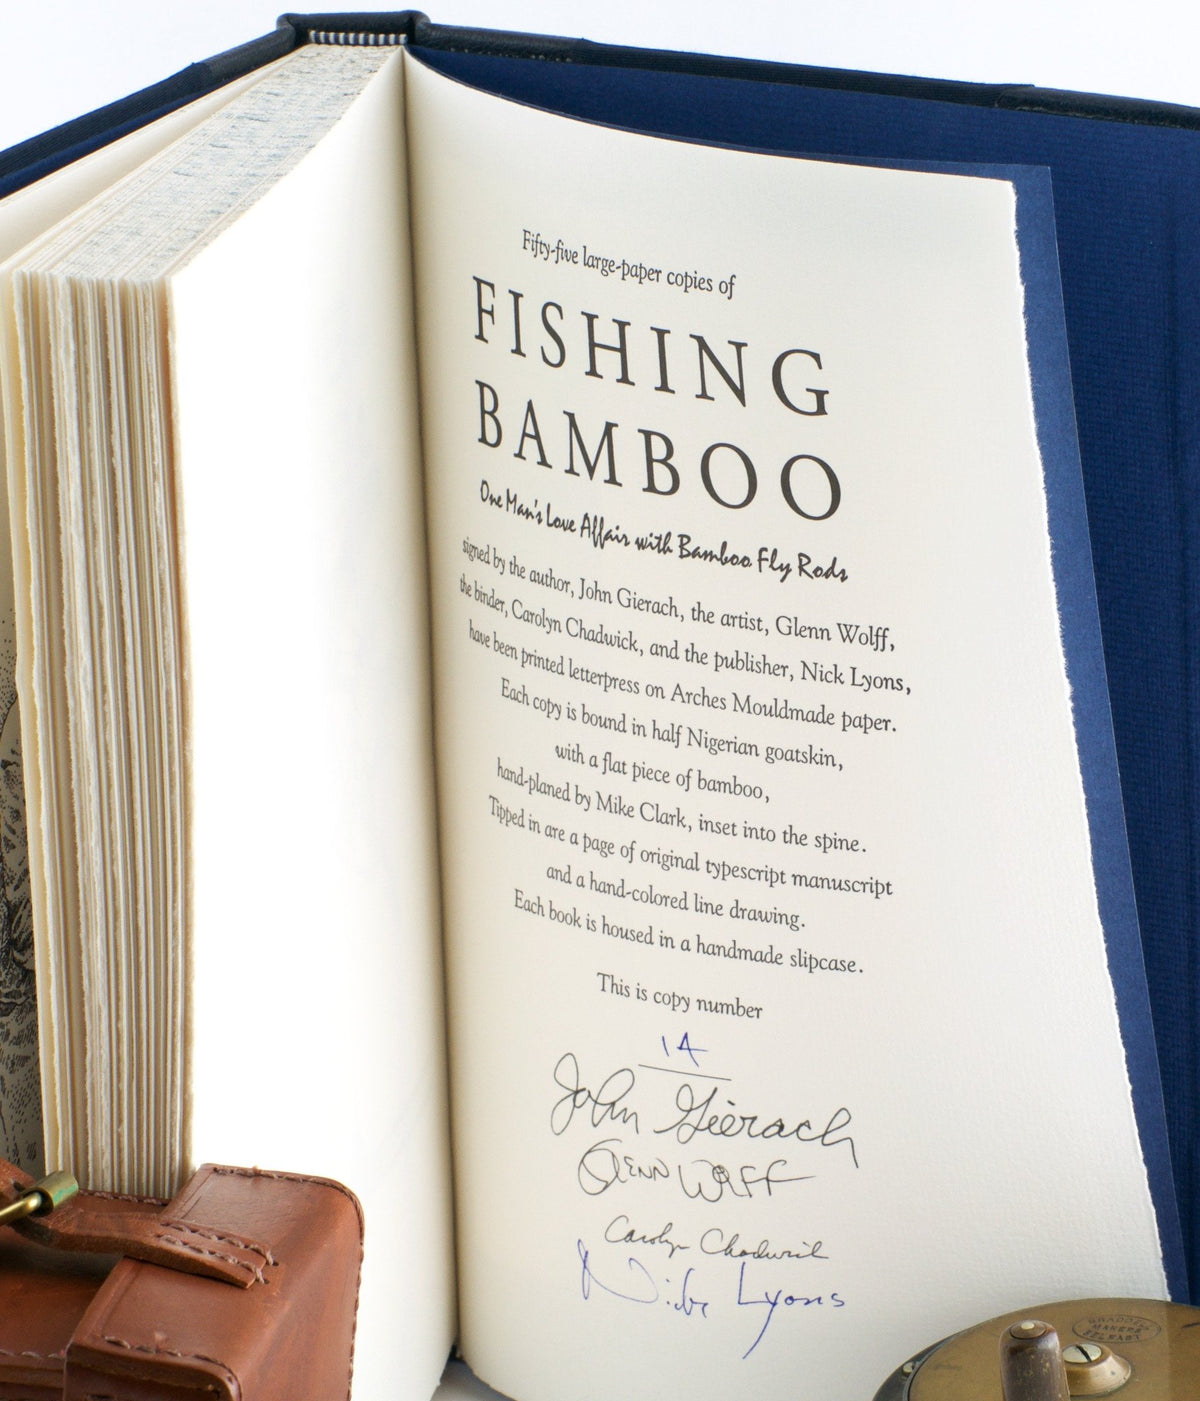 Fifty-five large-paper copies of
FISHING
BAMBOO
One Man's Love Affair with Bamboo Fly Rods
signed by the author, John Gierach, the artist, Glenn Wolff,
the binder, Carolyn Chadwick, and the publisher, Nick Lyons,
have been printed letterpress on Arches Mouldmade paper.
Each copy is bound in half Nigerian goatskin,
with a flat piece of bamboo,
hand-planed by Mike Clark, inset into the spine.
Tipped in are a page of original typescript manuscript
and a hand-colored line drawing.
Each book is housed in a handmade slipcase.
This is copy number
14
John Gierach
Glenn Wolff
Carolyn Chadwick
Nick Lyons
BRADDELL
MAKERS
BELFAST